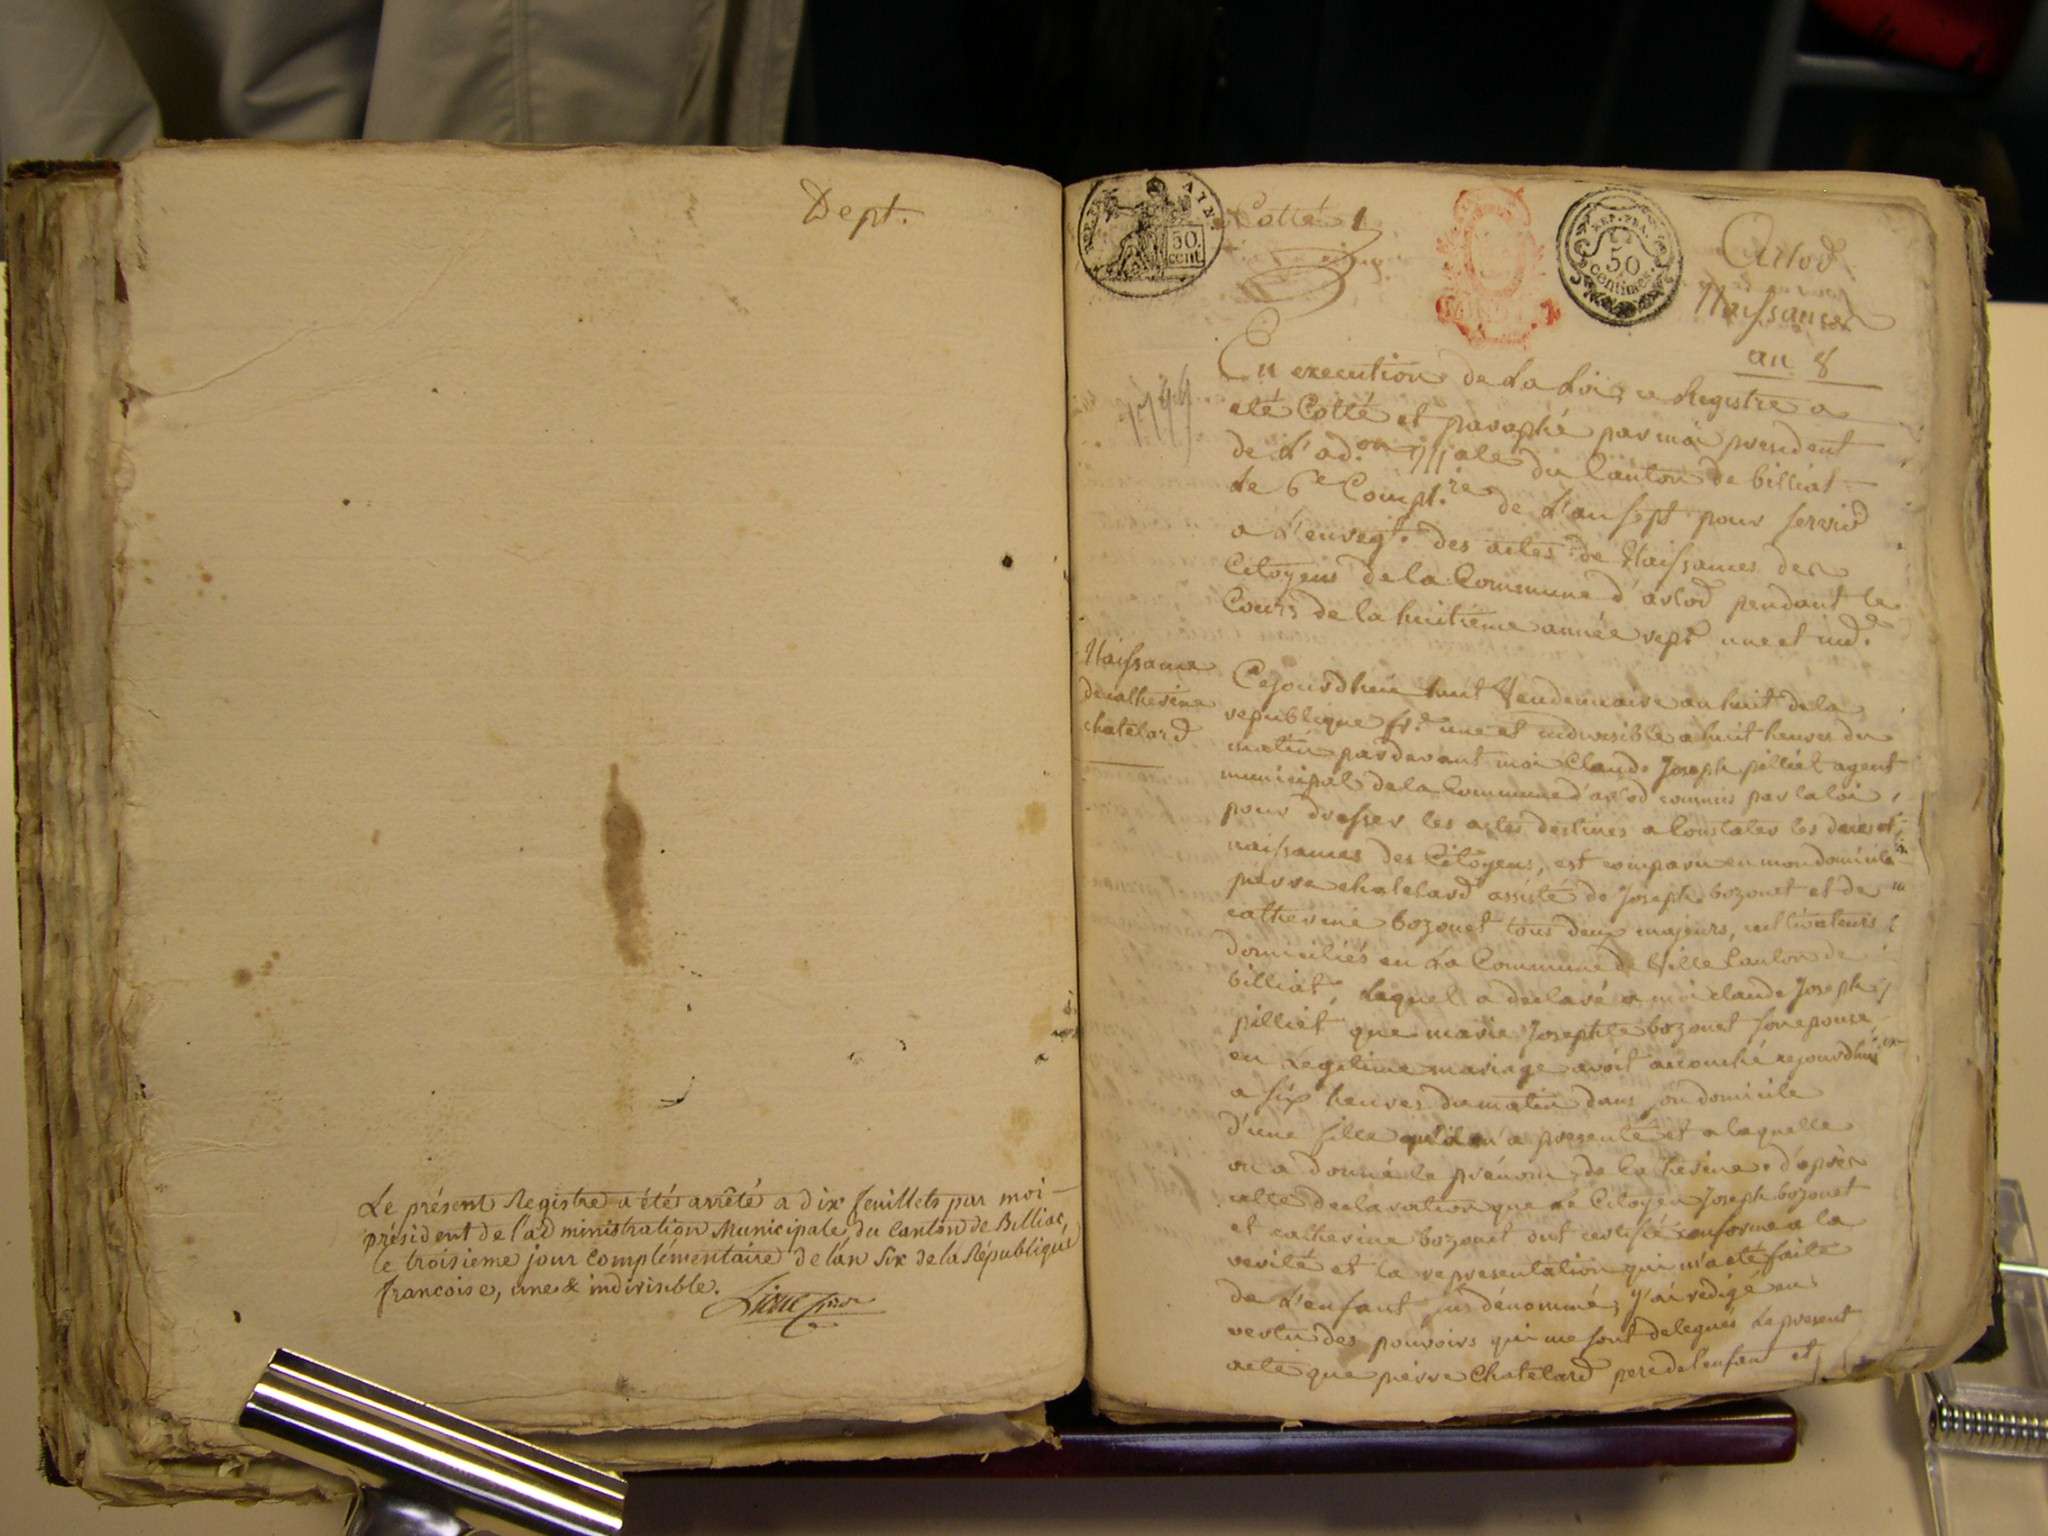 Dept.
Le présent Registre a été arrêté a dix feuillets par moi
président de l'administration Municipale du Canton de Billiat,
le troisieme jour complémentaire de l'an six de la République
francoise, une & indivisible.
50
cent
Cotté 1
REP. FRA.
50
centimes
Arlod
Naissances
an 8
1799
En execution de La Loi, ce Registre a
eté Cotté et paraphé par moi president
de L'ad.on Mpale du Canton de billiat
Le 6e Compt.re de L'an sept pour servir
a L'enregt. des actes de Naissances des
Citoyens de la Commune d'arlod pendant le
Cours de la huitieme année rept une et ind.e
Naissance
de catherine
chatelard
Cejourdhui huit Vendemiaire an huit de la
republique fr.e une et indivisible a huit heures du
matin pardevant moi Claude Joseph pilliet agent
municipal de la Commune d'arlod commis par la loi
pour dresser les actes destinés a Constater les deces et
naissances des Citoyens, est comparu en mon domicile
pierre chatelard assisté de Joseph bozonet et de
catherine bozonet tous deux majeurs, cultivateurs
domiciliés en La Commune de Ville Canton de
billiat, Lequel a declaré a moi claude Joseph
pilliet que marie Josephte bozonet son epouse
en Legitime mariage avoit accouché cejourdhui
a six heures du matin dans son domicile
d'une fille qu'il m'a presenté et a laquelle
on a donné le prénom de Catherine. d'après
cette declaration que Le Citoyen Joseph bozonet
et catherine bozonet ont certifié conforme a la
verité et la representation qui m'a eté faite
de L'enfant sus dénommé, j'ai redigé en
vertu des pouvoirs qui me sont delegués Le present
acte que pierre Chatelard pere de l'enfant et